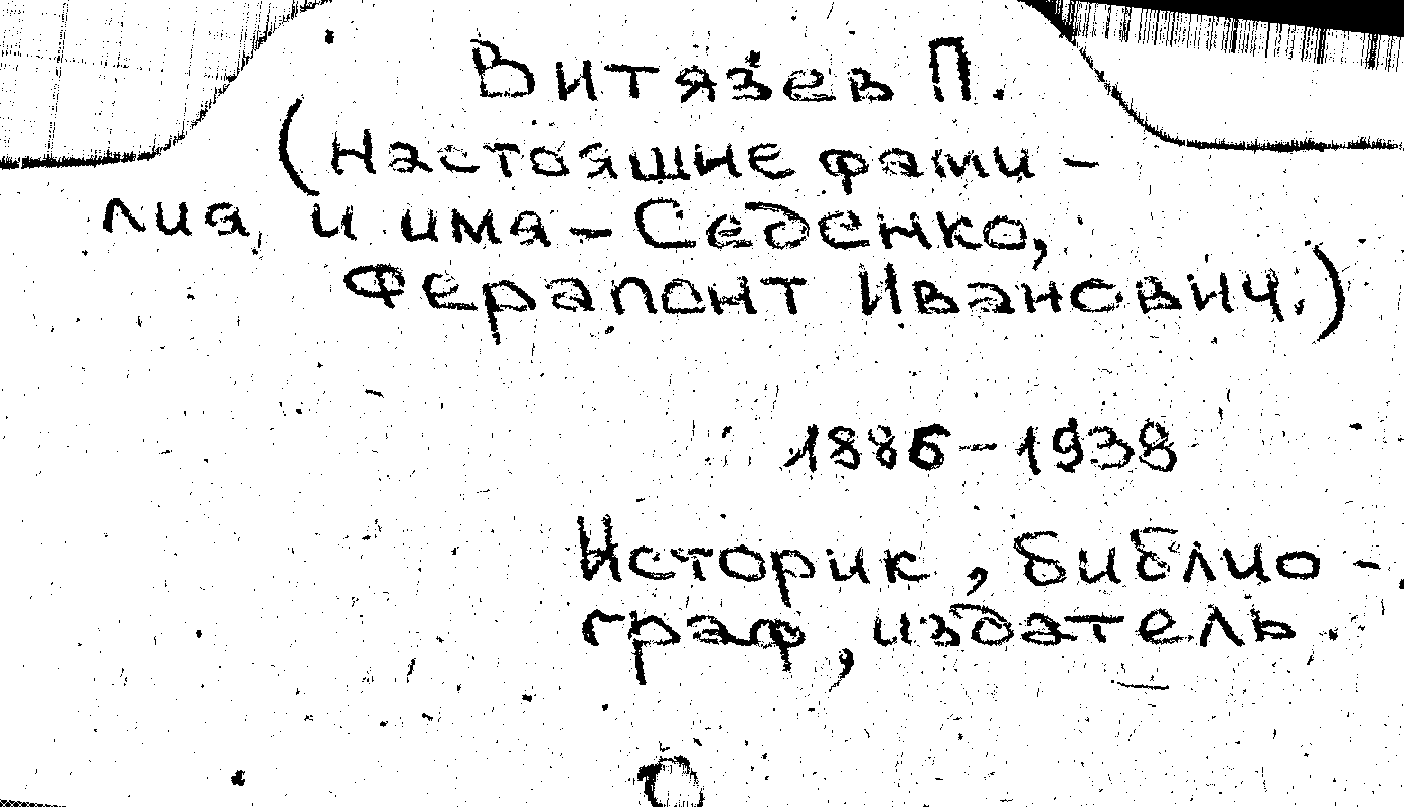 Витязев П.
(настоящие фами-
лия и имя - Седенко,
Ферапонт Иванович.)
1886-1938
Историк, библио-
граф, издатель.